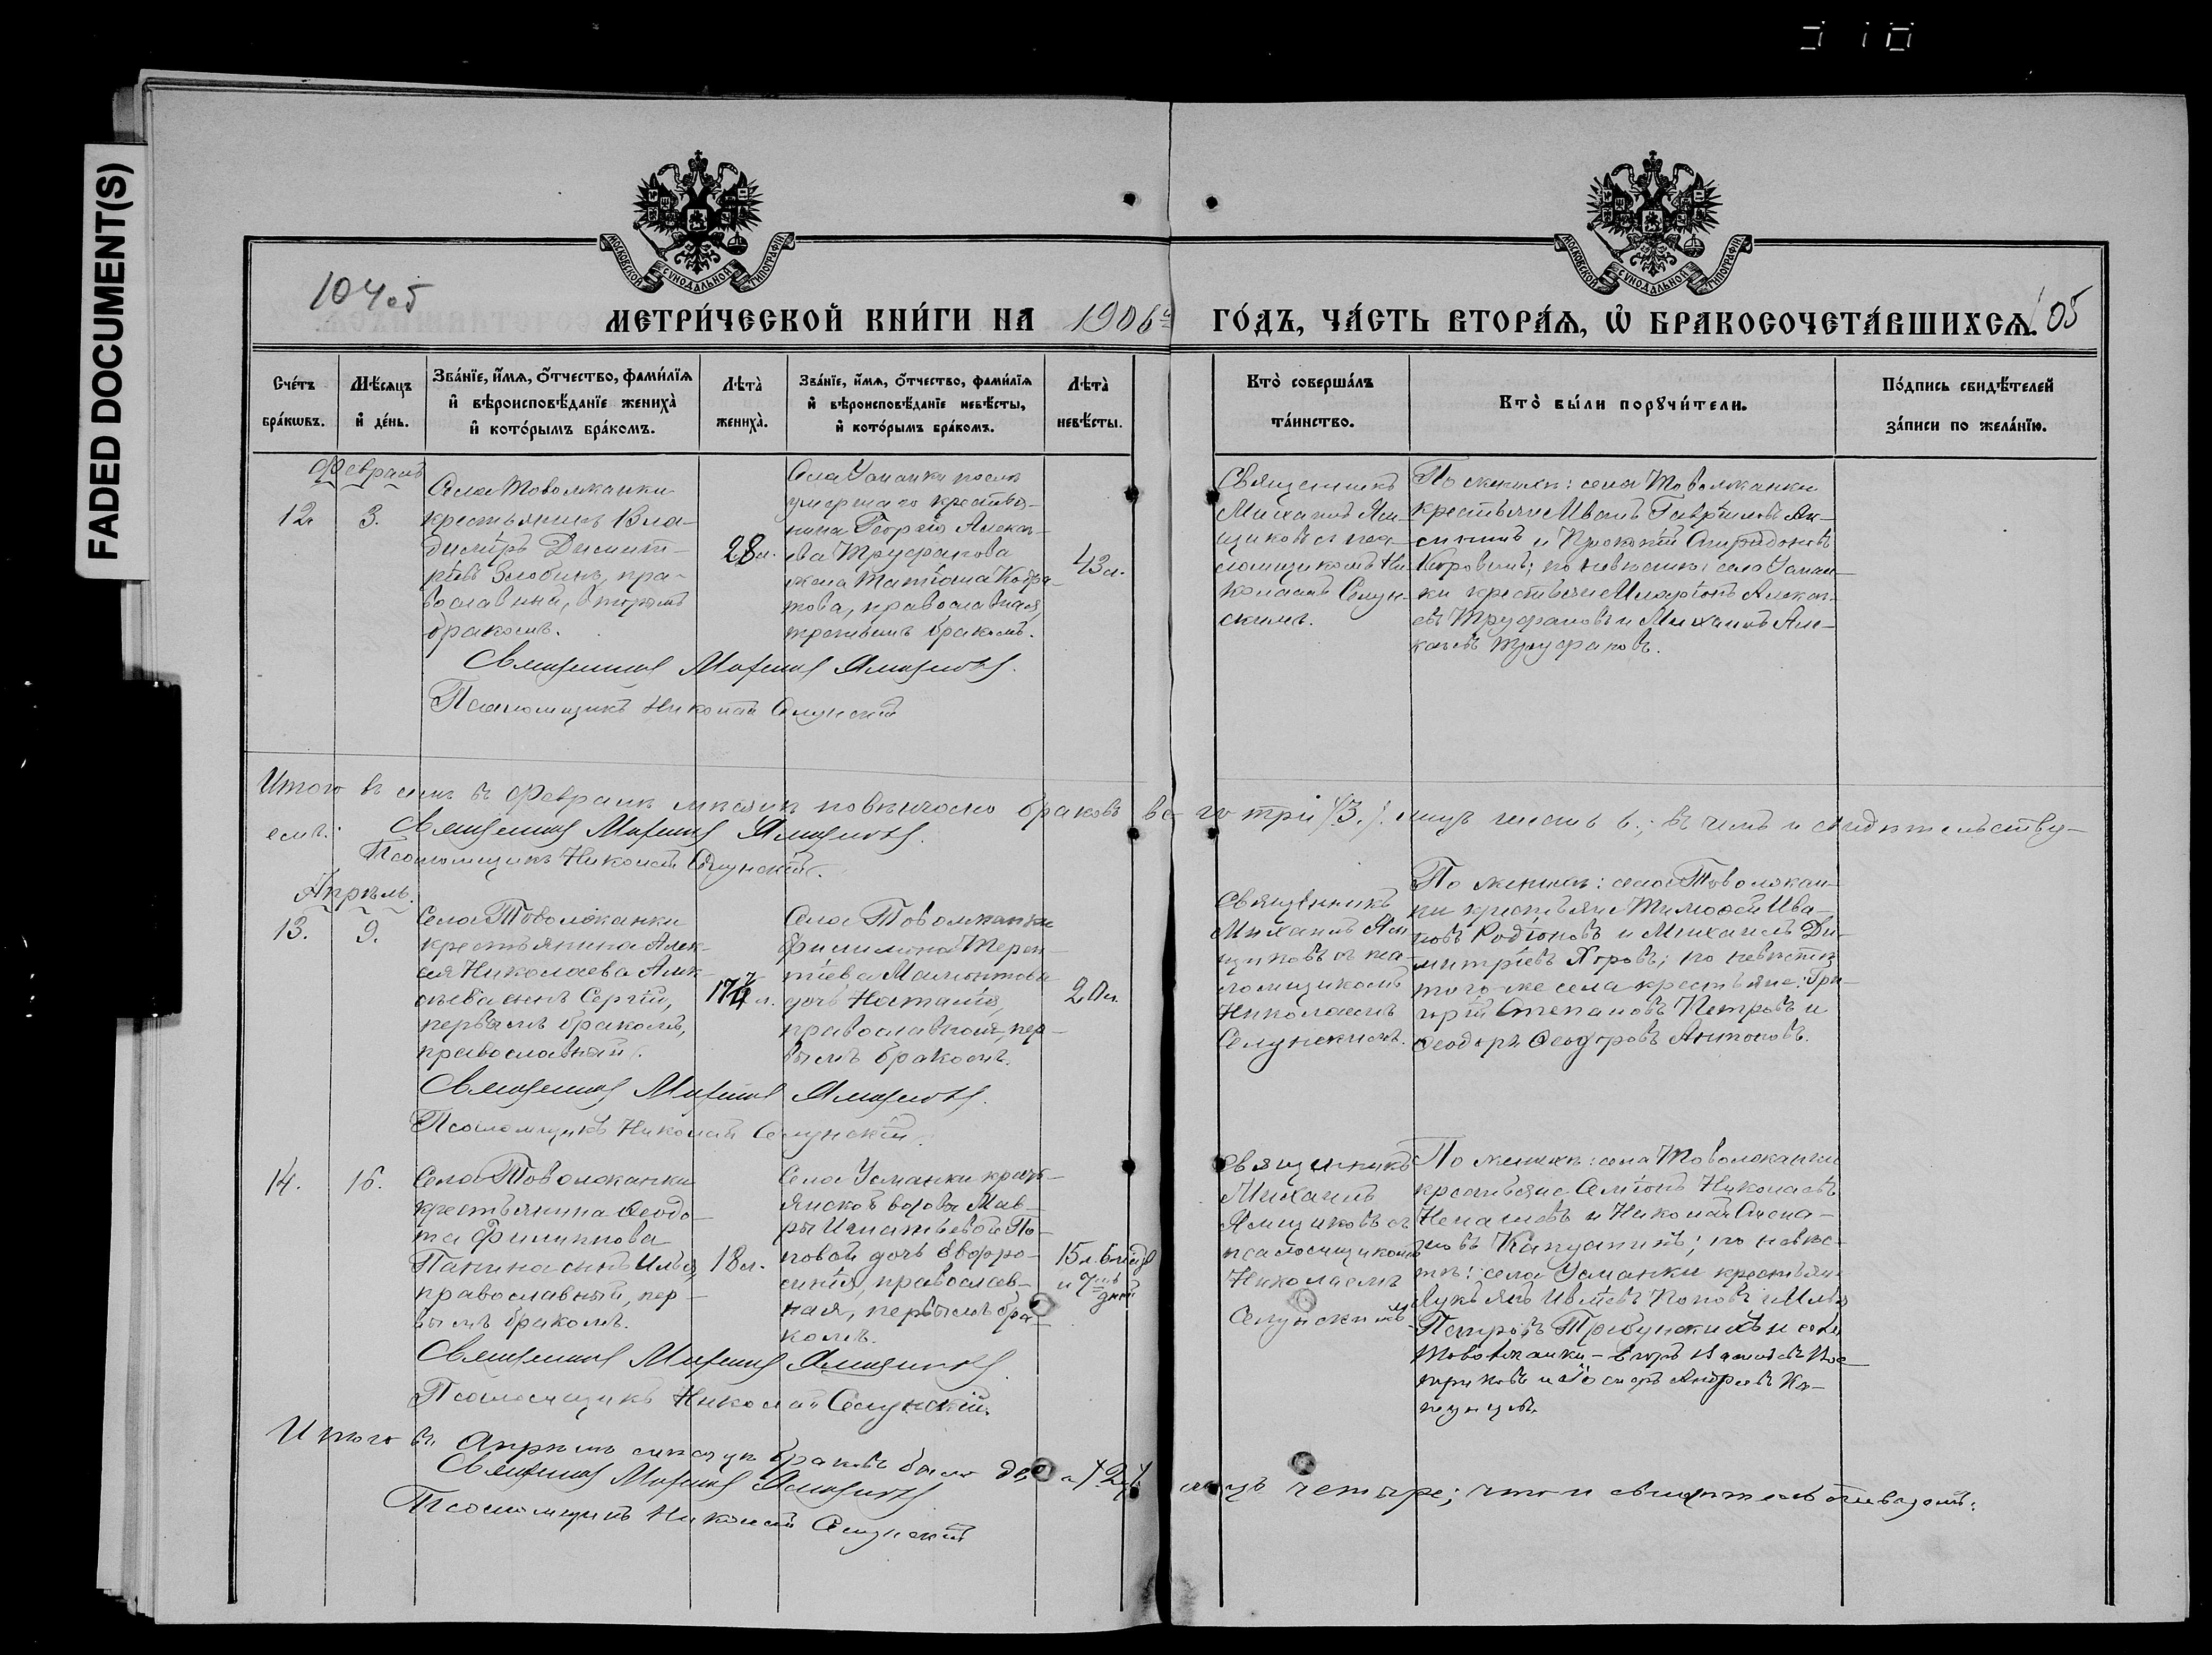 FADED DOCUMENT(S)
104 об
105
МОСКОВСКОЙ СѴНОДАЛЬНОЙ ТИПОГРАФІИ
МОСКОВСКОЙ СѴНОДАЛЬНОЙ ТИПОГРАФІИ
МЕТРИ́ЧЕСКОЙ КНИ́ГИ НА 1906й ГО́ДЪ, ЧА́СТЬ ВТОРА́Я, Ѽ БРАКОСОЧЕТА́ВШИХСЯ.
Сче́тъ бра́кωвъ.
Мѣ́сяцъ и҆ де́нь.
Зва́нїе, и҆́мя, ѻ҆́тчество, фамѝлїя и҆ вѣроисповѣ́данїе жениха̀ и҆ кото́рымъ бра́комъ.
Лѣ́та̀ жениха̀.
Зва́нїе, и҆́мя, ѻ҆́тчество, фамѝлїя и҆ вѣроисповѣ́данїе невѣ́сты, и҆ кото́рымъ бра́комъ.
Лѣ́та̀ невѣ́сты.
Кто̀ соверша́лъ та́инство.
Кто̀ бы́ли порꙋчи́тели.
По́дпись свидѣ́телей за́писи по жела́нїю.
Февраль
12.
3.
Села Товолжанки
крестьянинъ Вла-
димiръ Димит-
рiевъ Злобинъ, пра-
вославный, вторымъ
бракомъ.
28 л.
Села Усманки послѣ
умершаго крестья-
нина Георгiя Алекса-
ева Труфанова
жена Татiана Кодра-
това, православная,
третьимъ бракомъ.
43 л.
Священникъ
Михаилъ Ям-
щиковъ съ пса-
ломщикомъ Ни-
колаемъ Селун-
скимъ.
По женихѣ: села Товолжанки
крестьяне Иванъ Гаврiиловъ
и Прокопiй Спиридоновъ
по невѣстѣ: села Усман-
ки крестьяне Иларiонъ Алекса-
евъ Труфановъ и Михаилъ Але-
ксѣевъ Труфановъ.
Священникъ Михаилъ Ямщиковъ.
Псаломщикъ Николай Селунскiй
Итого въ семъ въ Февралѣ мѣсяцѣ повѣнчано браковъ всего три /3./ лицъ шесть 6.; въ чемъ и свидѣтельству-
емъ:
Священникъ Михаилъ Ямщиковъ.
Псаломщикъ Николай Селунскiй.
Апрѣль.
13.
9.
Села Товолжанки
крестьянина Алек-
сѣя Николаева Алек-
сѣева сынъ Сергiй,
первымъ бракомъ,
православный.
17 л.
Села Товолжанки
Филимона Терен-
тiева Мамонтова
дочь Наталiя,
православная, пер-
вымъ бракомъ.
20 л.
Священникъ
Михаилъ Ям-
щиковъ съ пса-
ломщикомъ
Николаемъ
Селунскимъ.
По женихѣ: села Товолжан-
ки крестьяне Тимоѳей Ива-
новъ Родiоновъ и Михаилъ Ди-
митрiевъ; по невѣстѣ
того же села крестьяне: Гри-
горiй Степановъ Петровъ и
Ѳеодоръ Ѳеодоровъ Антоновъ.
Священникъ Михаилъ Ямщиковъ.
Псаломщикъ Николай Селунскiй.
14.
16.
Села Товолжанки
крестьянина Ѳеодо-
та Филиппова
Панина сынъ Илья,
православный, пер-
вымъ бракомъ.
18 л.
Села Усманки крест-
янской вдовы Мав-
ры Игнатьевой По-
повой дочь Евфро-
синiя, православ-
ная, первымъ бра-
комъ.
15 л. 6 мѣс.
и 7 дней
Священникъ
Михаилъ
Ямщиковъ съ
псаломщикомъ
Николаемъ
Селунскимъ
По женихѣ: села Товолжанки
крестьяне Семiонъ Николаевъ
и Николай
Капустинъ; по невѣс-
тѣ: села Усманки крестьяне
Лукьянъ Поповъ и Илья
Петровъ Трибунскихъ и села
Товолжанки - Егоръ
Андреевъ
Священникъ Михаилъ Ямщиковъ.
Псаломщикъ Николай Селунскiй.
Итого въ Апрѣлѣ мѣсяцѣ браковъ было два /2./ лицъ четыре; что и свидѣтельствуемъ:
Священникъ Михаилъ Ямщиковъ
Псаломщикъ Николай Селунскiй